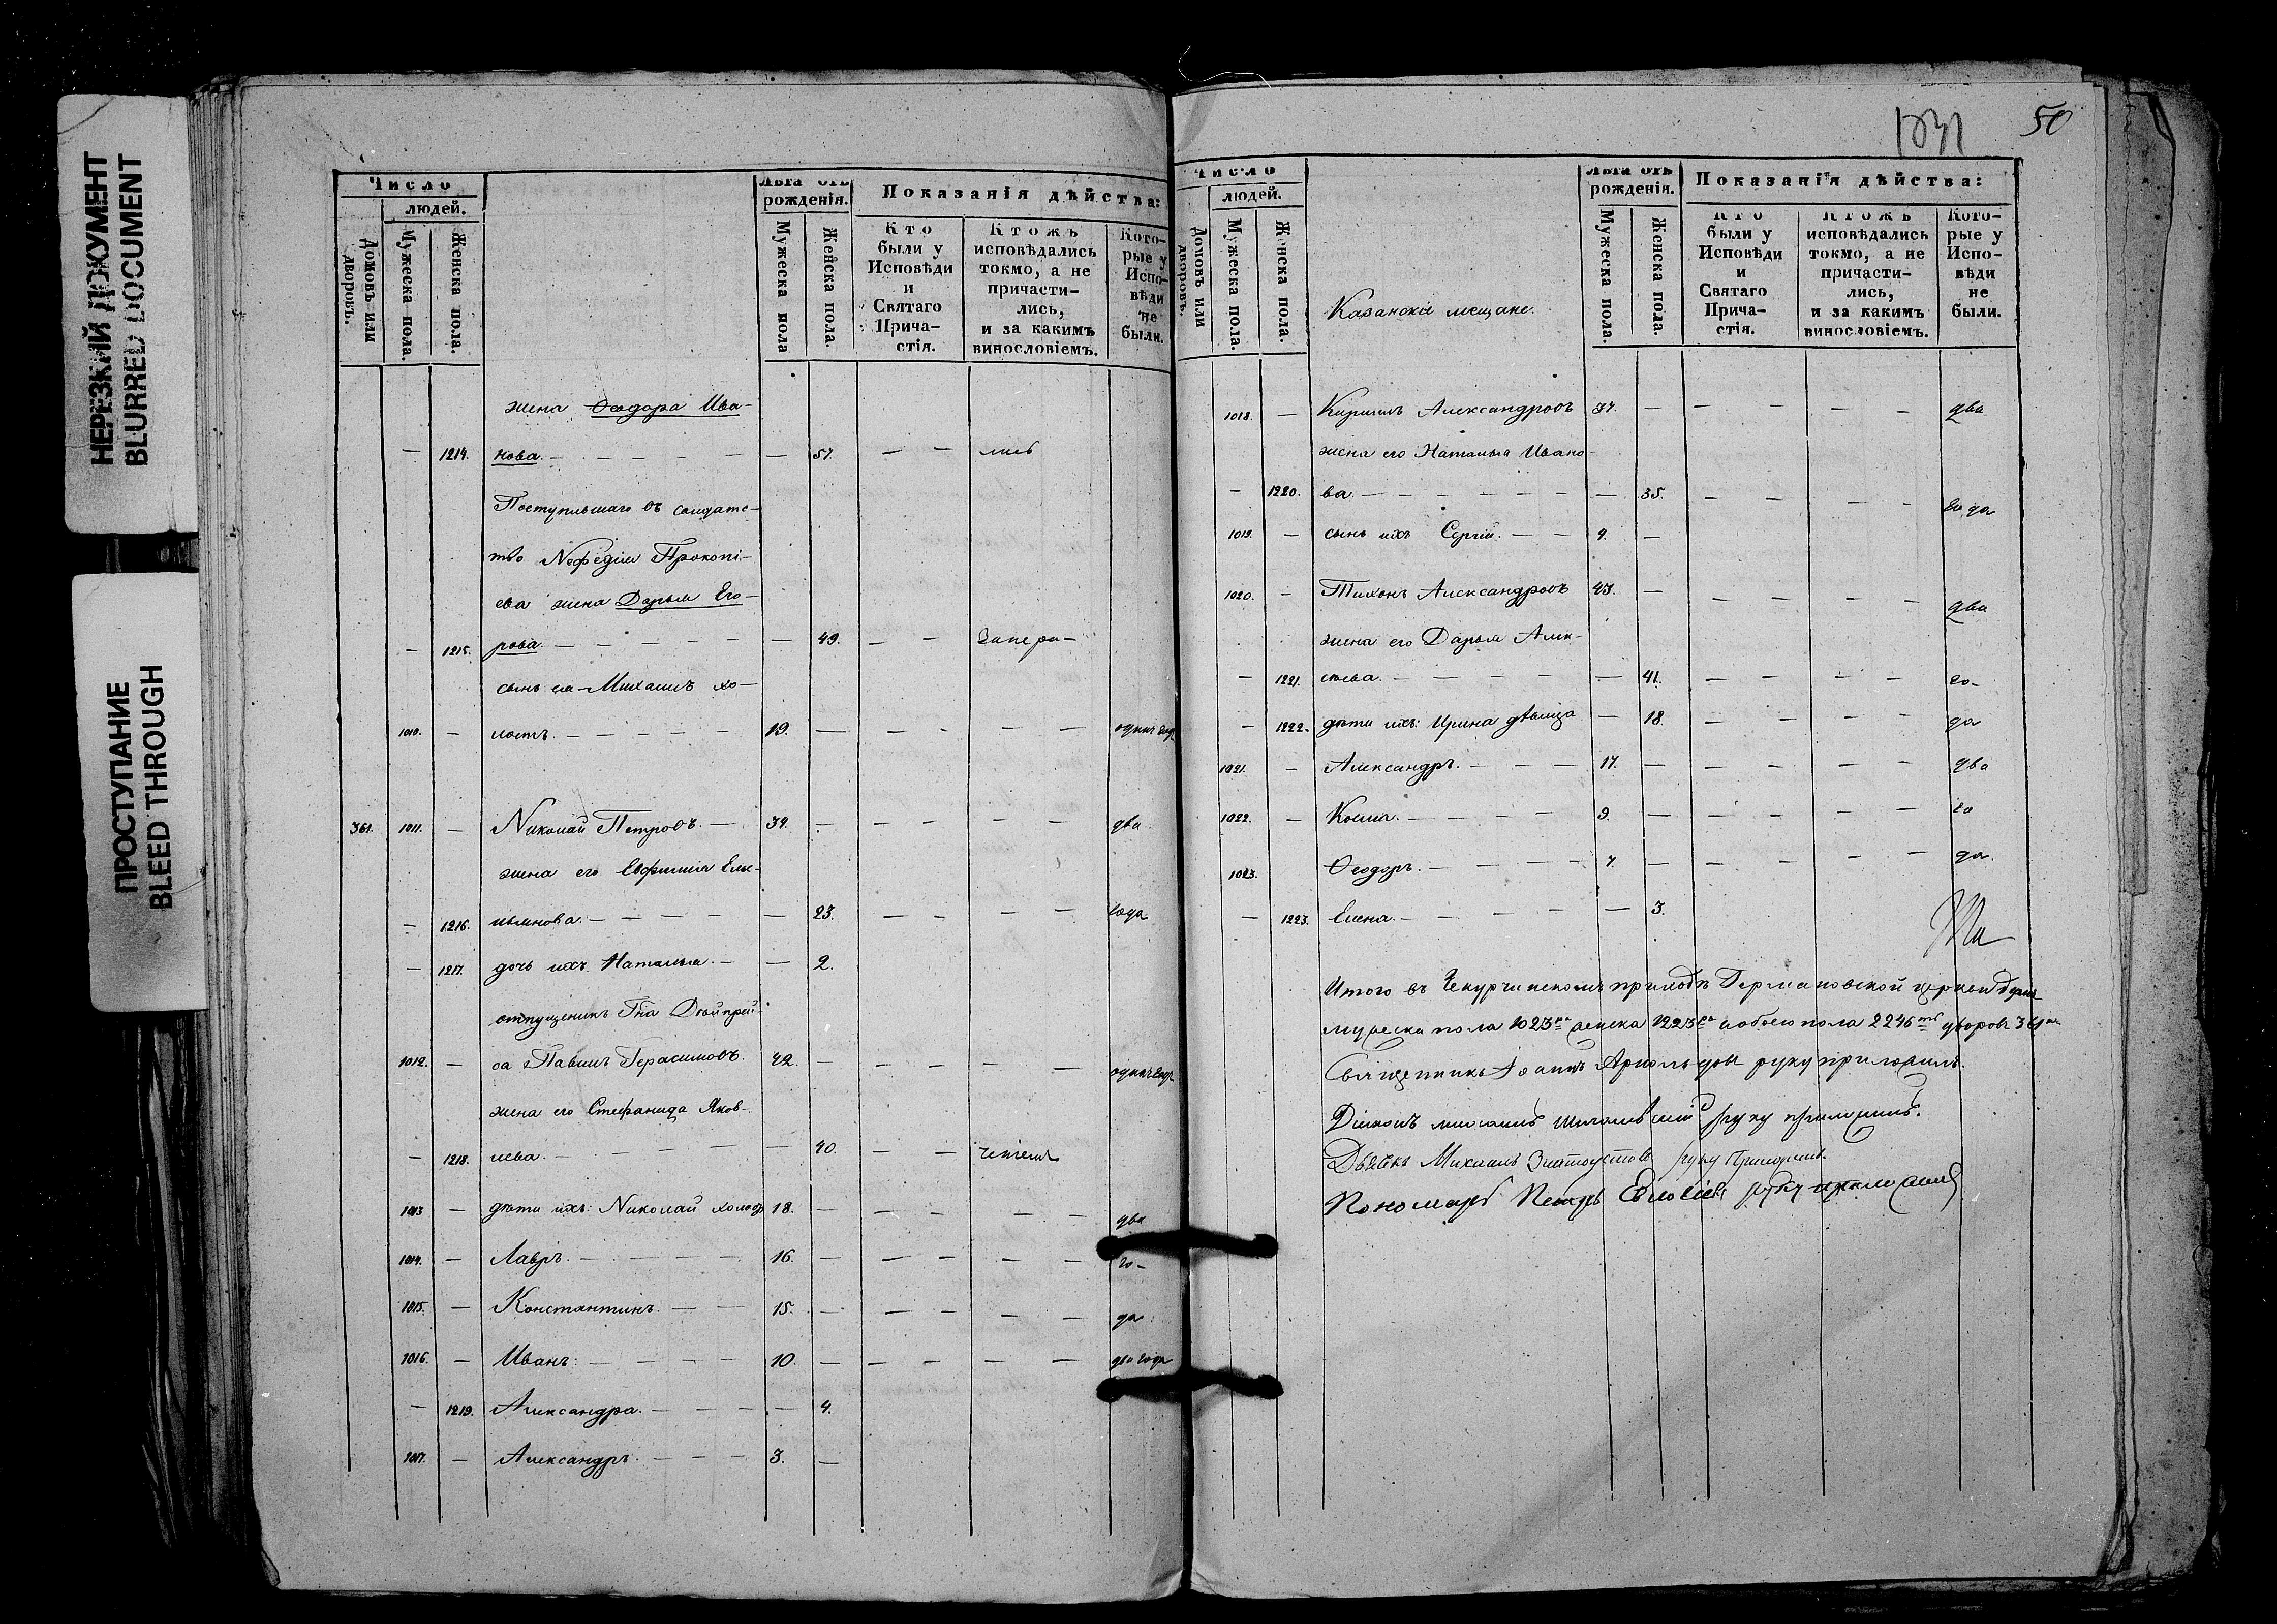 НЕРЕЗКИЙ ДОКУМЕНТ
BLURRED DOCUMENT
ПРОСТУПАНИЕ
BLEED THROUGH
Число
людей.
Домовъ или дворовъ.
Мужеска пола.
Женска пола.
Лѣта отъ рожденія.
Мужеска пола
Женска пола.
Показанія дѣйства:
Кто были у Исповѣди и Святаго Прича-стія.
Ктожъ исповѣдались токмо, а не причасти-лись, и за какимъ винословіемъ.
Кото-рые у Испо-вѣди не были.
жена Ѳеодора Ива-
— 1214. нова. — — 57. — —
Поступившаго въ солдатс-
тво Нефедія Прокопі-
ева жена Дарья Его-
— 1215. рова. — — 49. — —
сынъ ея Михаилъ хо-
1010. — лостъ. — 19. — — — — — одинъ годъ
361. 1011. — Николай Петровъ. — 34. — — — — — два
жена его Евфимія Еме-
— 1216. льянова. — — 23. — — — — года
— 1217. дочь ихъ Наталья. — — 2.
отпущеникъ Гна
1012. — Павелъ Герасимовъ. 42. — — — — — одинъ годъ
жена его Стефанида Яков-
— 1218. лева. — — 40. — —
1013 — дѣти ихъ: Николай холос 18. — — — — — два
1014. — Лавръ. — 16. — — — — — го-
1015. — Константинъ. — 15. — — — — — да
1016. — Иванъ: — 10. — — — — — два года
— 1219. Александра. — — 4.
1017. — Александръ. — 3. —
1031 50
Число
людей.
Домовъ или дворовъ.
Мужеска пола.
Женска пола.
Казанскіе мещане.
Лѣта отъ рожденія.
Мужеска пола.
Женска пола.
Показанія дѣйства:
Кто были у Исповѣди и Святаго Прича-стія.
Ктожъ исповѣдались токмо, а не причасти-лись, и за какимъ винословіемъ.
Кото-рые у Испо-вѣди не были.
1018. — Кирилъ Александровъ 37. — — — — — два
жена его Наталья Ивано-
— 1220. ва. — — 35. — — — — года
1019. — сынъ ихъ Сергій. — 4. —
1020. — Тихонъ Александровъ 43. — — — — — два
жена его Дарья Алек-
— 1221. сѣева. — — 41. — — — — го-
— 1222. дѣти ихъ: Ирина дѣвица — 18. — — — — да
1021. — Александръ. — 17. — — — — — два
1022. — Косма. — 9. — — — — — го
1023. Ѳеодоръ. — 7. — — — — — да.
— 1223. Елена. — — 3.
Итого въ Чекурчинскомъ приходѣ Германовской церкви
мужеска пола 1023 женска 1223 и обоего пола 2246 дворовъ 361
Священникъ Іоаннъ руку приложилъ.
Діаконъ руку приложилъ.
Дьячекъ Михаилъ Златоустовъ руку приложилъ.
Пономарь Петръ руку приложилъ